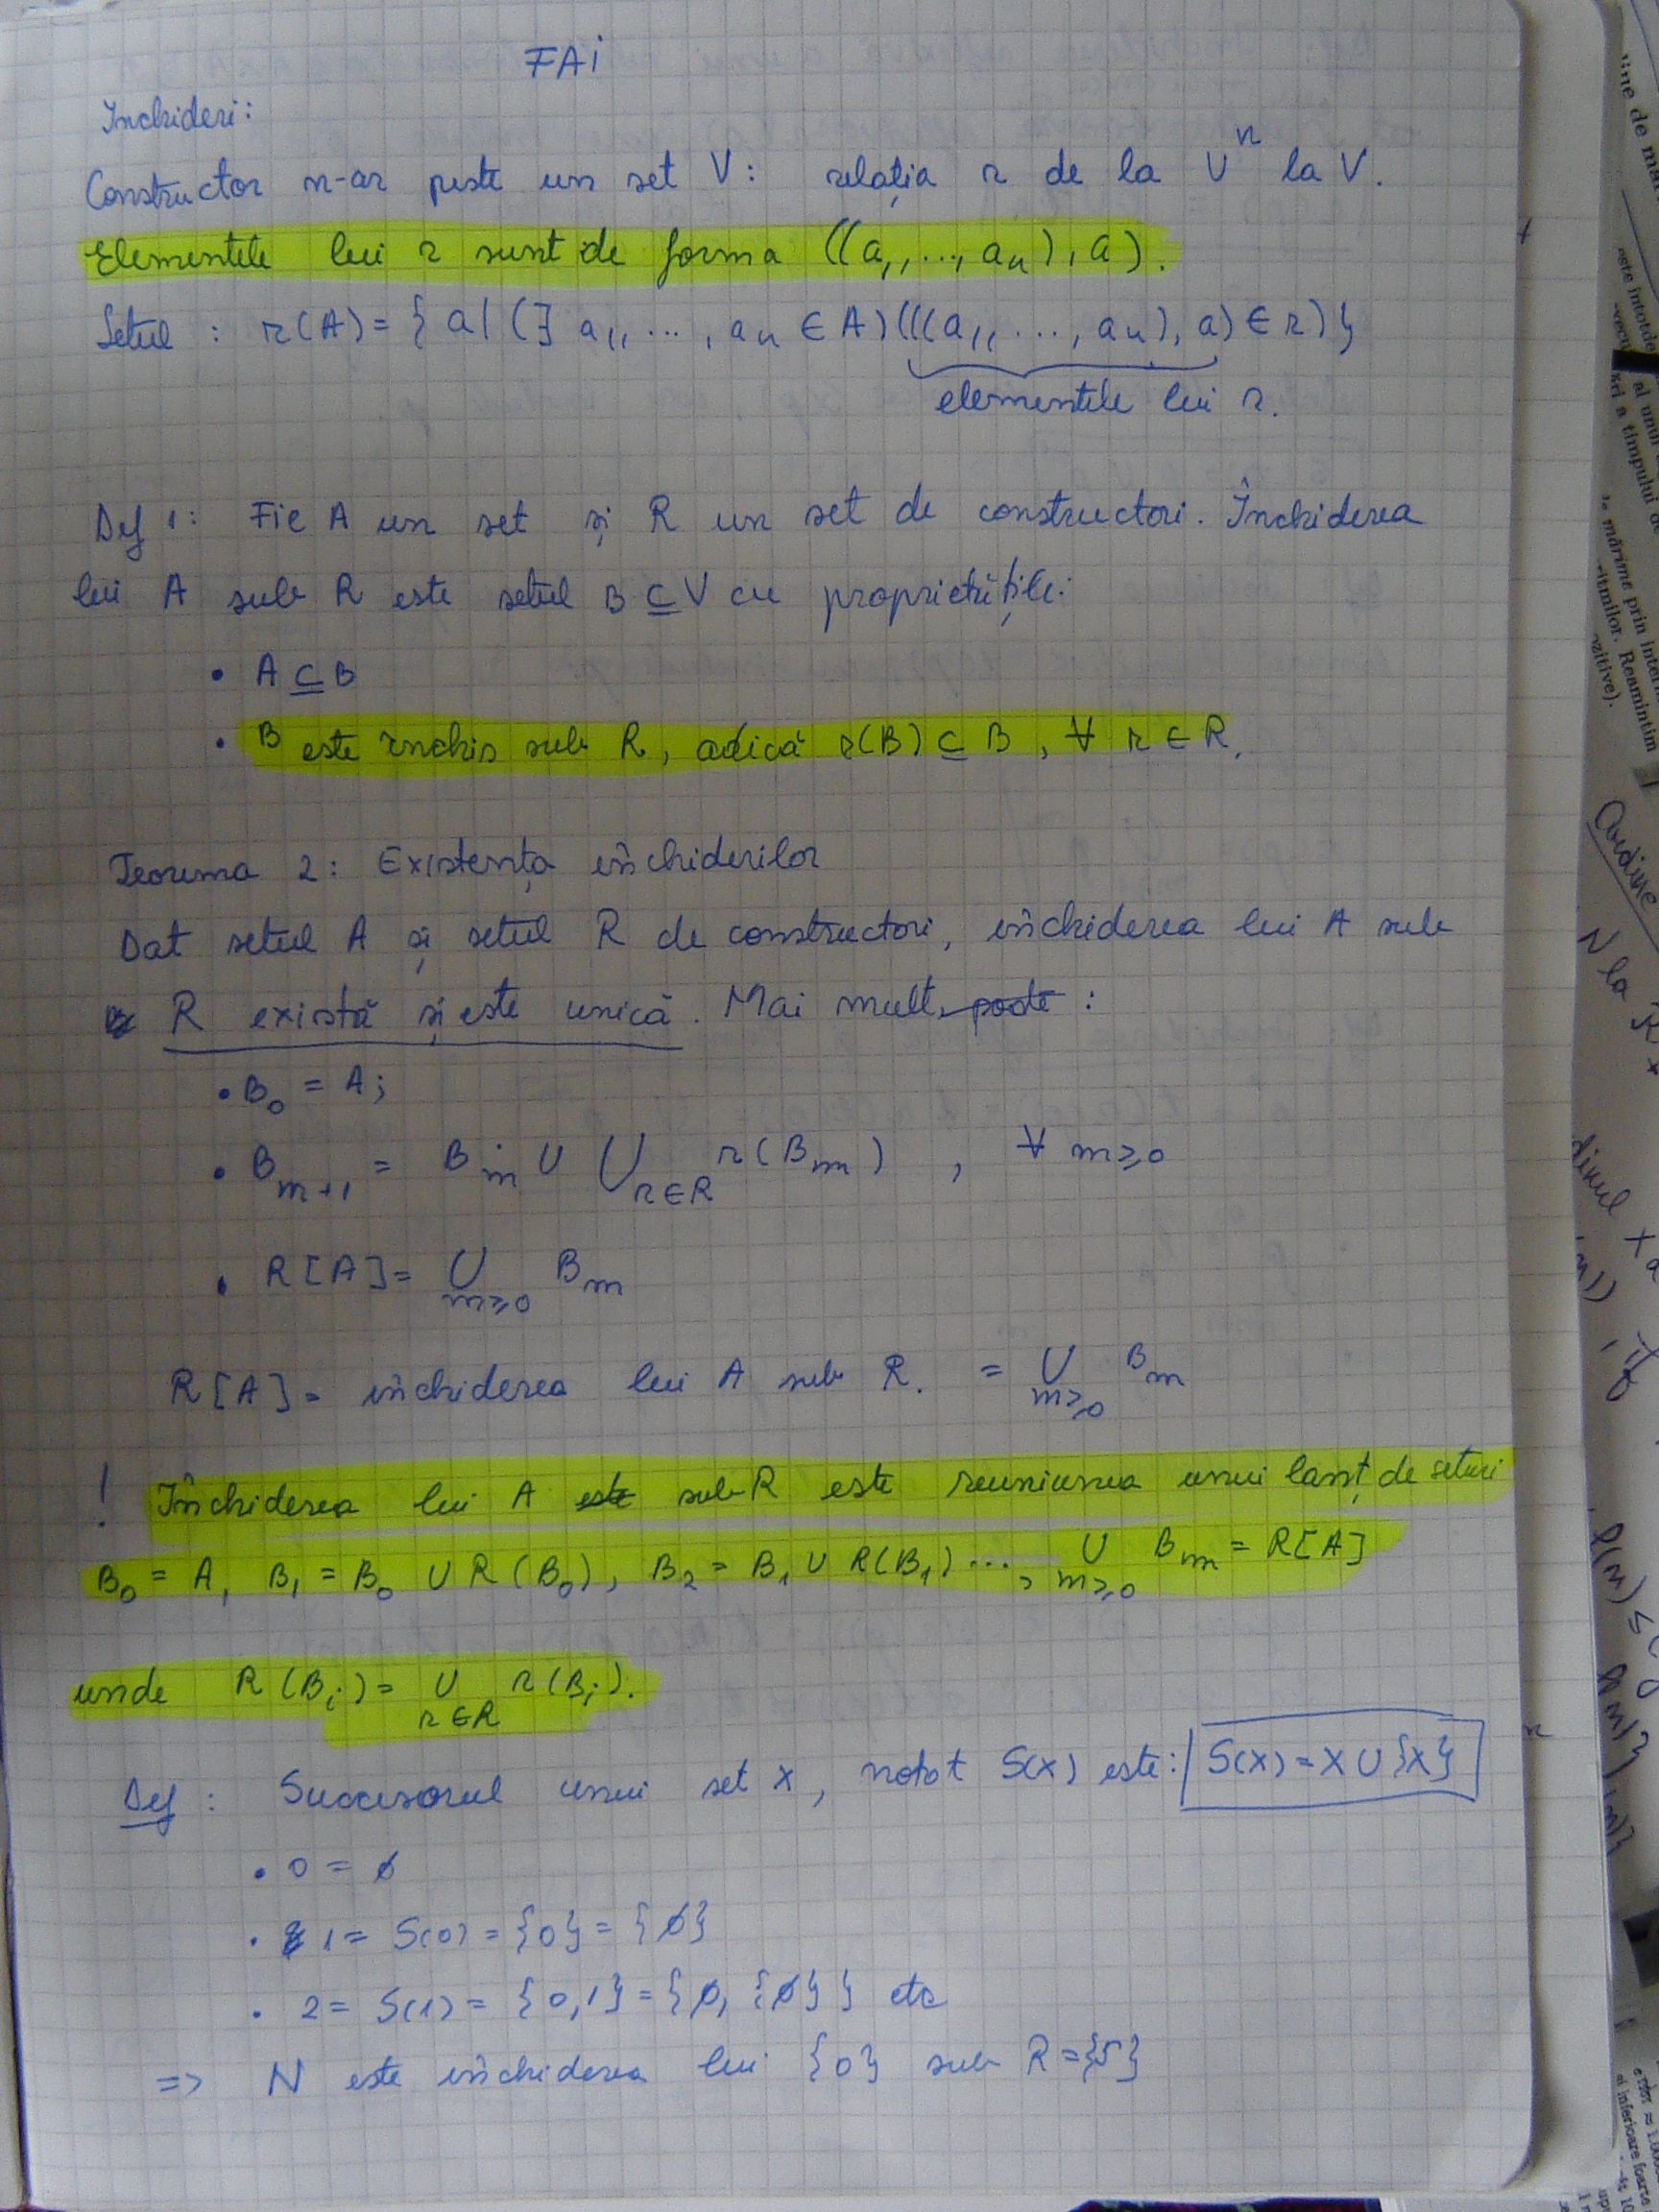 FAI
Inchideri:
Constructor n-ar peste un set V: relația r de la Vⁿ la V.
Elementele lui r sunt de forma ((a₁,...,aₙ), a).
Setul : r(A) = { a | (∃ a₁, ..., aₙ ∈ A)(((a₁, ..., aₙ), a) ∈ r) }
elementele lui r.
Def 1: Fie A un set și R un set de constructori. Închiderea
lui A sub R este setul B ⊆ V cu proprietățile:
• A ⊆ B
• B este închis sub R, adică r(B) ⊆ B, ∀ r ∈ R.
Teorema 2: Existența închiderilor
Dat setul A și setul R de constructori, închiderea lui A sub
R există și este unică. Mai mult, poate :
• B₀ = A;
• Bₘ₊₁ = Bₘ ∪ ⋃_{r∈R} r(Bₘ) , ∀ m ≥ 0
• R[A] = ⋃_{m≥0} Bₘ
R[A] = închiderea lui A sub R. = ⋃_{m≥0} Bₘ
! Închiderea lui A este sub R este reuniunea unui lanț de seturi
B₀ = A, B₁ = B₀ ∪ R(B₀), B₂ = B₁ ∪ R(B₁) ..., ⋃_{m≥0} Bₘ = R[A]
unde R(Bᵢ) = ⋃_{r∈R} r(Bᵢ).
Def : Succesorul unui set x, notat S(x) este: S(x) = x ∪ {x}
• 0 = ∅
• 1 = S(0) = {0} = {∅}
• 2 = S(1) = {0,1} = {∅, {∅}} etc
=> N este închiderea lui {0} sub R = {S}